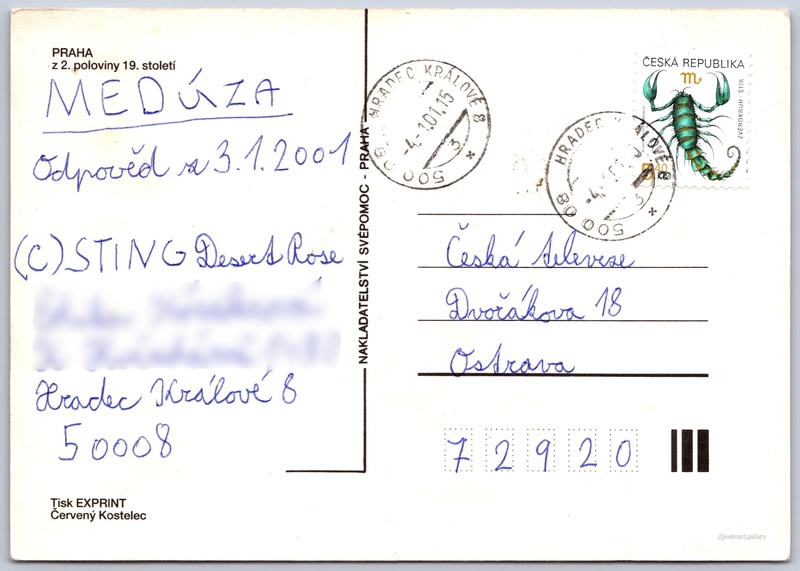 PRAHA
z 2. poloviny 19. století
MEDÚZA
Odpověd z 3.1.2001
(C) STING Desert Rose
Hradec Králové 8
50008
Tisk EXPRINT
Červený Kostelec
NAKLADATELSTVÍ SVÉPOMOC - PRAHA
HRADEC KRÁLOVÉ 8
-4.-1.01.15
3
500 08
HRADEC KRÁLOVÉ 8
500 08
ČESKÁ REPUBLIKA
m
ZVĚROKRUH - ŠTÍR
5,40
Česká televese
Dvořákova 18
Ostrava
72920